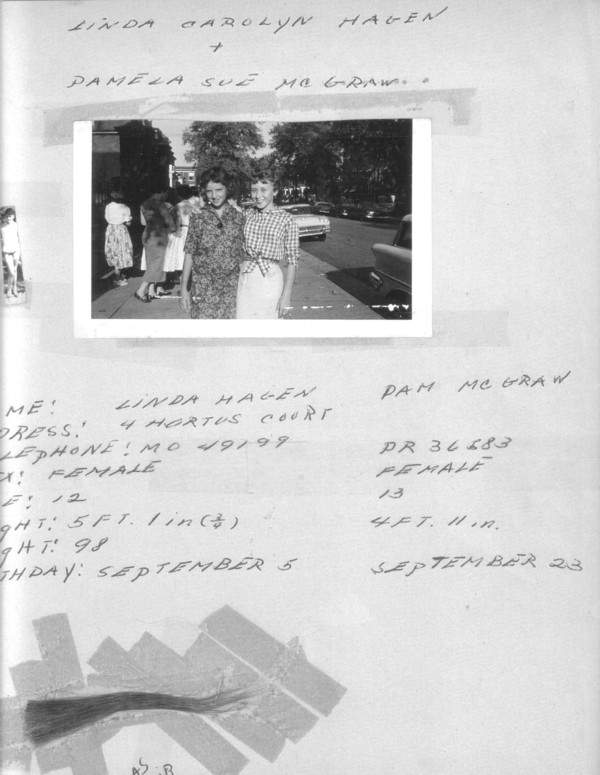 LINDA CAROLYN HAGEN
+
PAMELA SUE MCGRAW..
ME: LINDA HAGEN PAM MCGRAW
DRESS: 4 HORTUS COURT
LEPHONE: MO 49199 DR 36683
X: FEMALE FEMALE
E: 12 13
GHT: 5 FT. 1 in (3/4) 4 FT. 11 in.
gHT: 98
THDAY: SEPTEMBER 5 SEPTEMBER 23